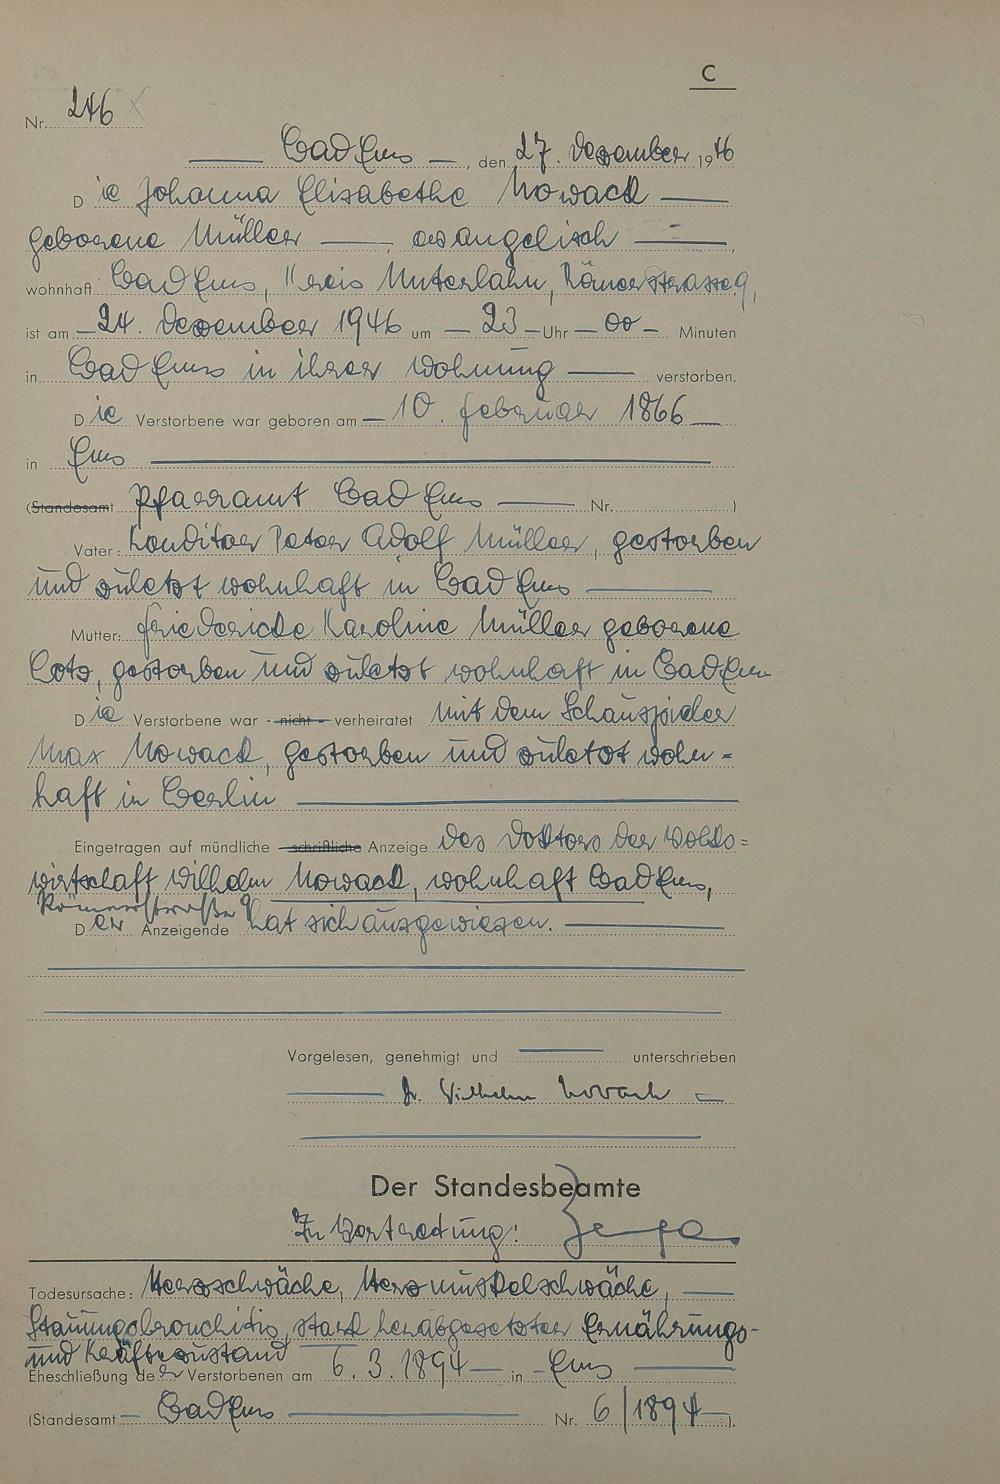 C
Nr. 246
Bad Ems, den 27. Dezember 1946
Die Johanna Elisabetha Nowack
geborene Müller, evangelisch,
wohnhaft Bad Ems, Kreis Unterlahn, Römerstrasse 9,
ist am 24. Dezember 1946 um 23 Uhr 00 Minuten
in Bad Ems in ihrer Wohnung verstorben.
Die Verstorbene war geboren am 10. Februar 1866
in Ems
(Standesamt Pfarramt Bad Ems Nr. )
Vater: Konditor Peter Adolf Müller, gestorben
und zuletzt wohnhaft in Bad Ems
Mutter: Friedericke Karoline Müller geborene
Lotz, gestorben und zuletzt wohnhaft in Bad Ems
Die Verstorbene war - nicht - verheiratet mit dem Schauspieler
Max Nowack, gestorben und zuletzt wohn=
haft in Berlin
Eingetragen auf mündliche - schriftliche Anzeige des Doktors der Volks=
wirtschaft Wilhelm Nowack, wohnhaft Bad Ems,
Römerstraße 9
Der Anzeigende hat sich ausgewiesen.
Vorgelesen, genehmigt und unterschrieben
Dr. Wilhelm Nowack
Der Standesbeamte
In Vertretung:
Todesursache: Herzschwäche, Herzmuskelschwäche,
Stauungsbronchitis, stark herabgesetzter Ernährungs-
und Kräftezustand
Eheschließung der Verstorbenen am 6.3.1894 in Ems
(Standesamt Bad Ems Nr. 6/1894).